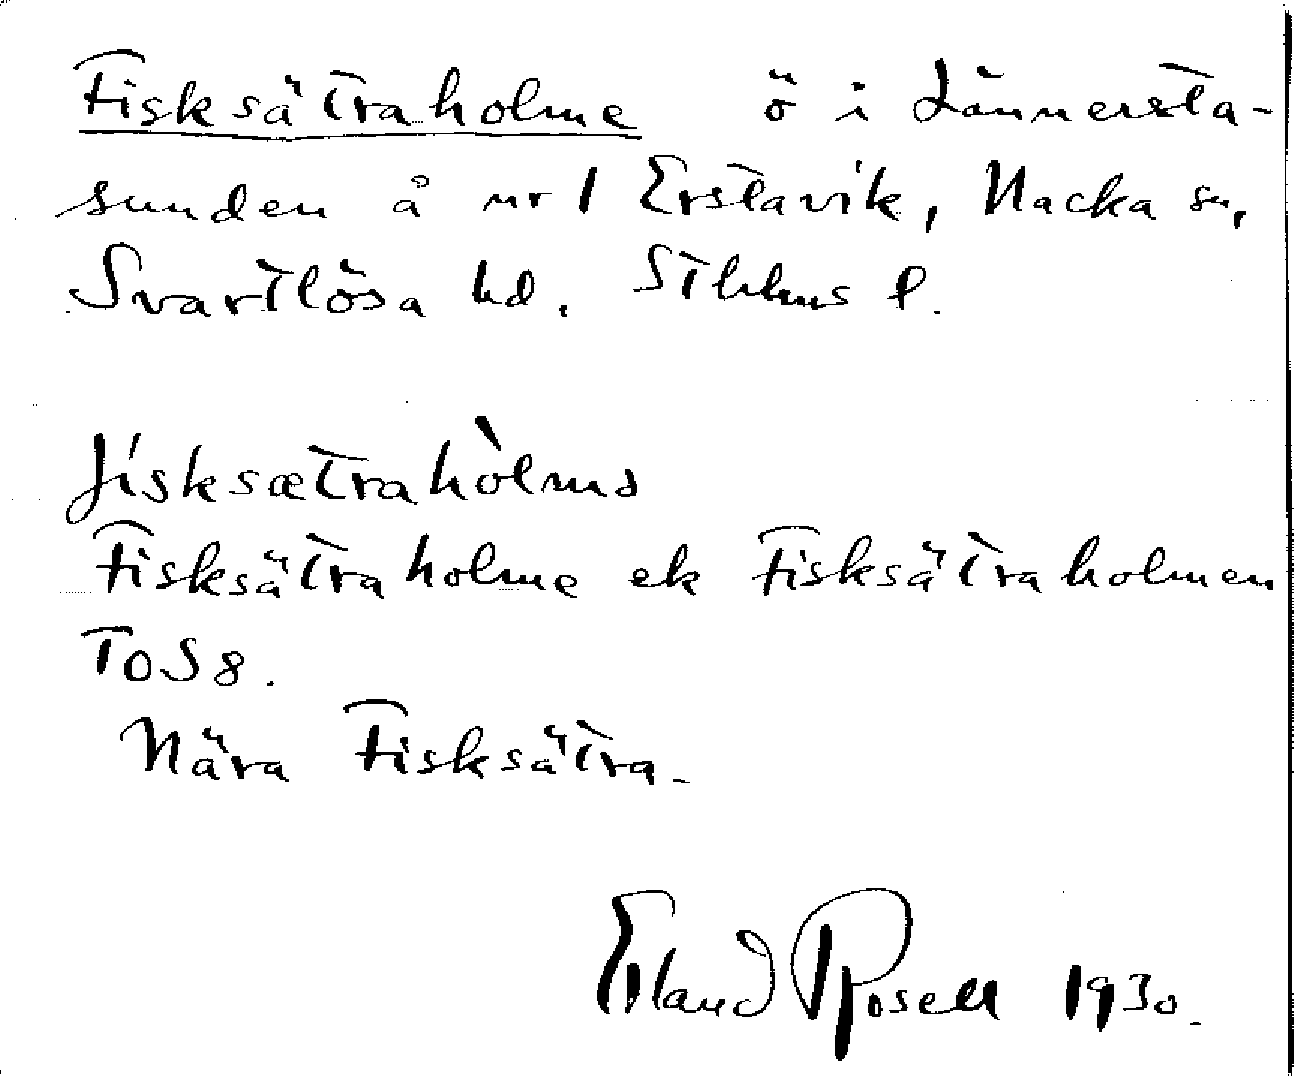 Fisksätraholme ö i Lännersta-
sunden å nr 1 Erstavik, Nacka sn,
Svartlösa hd. Sthlms l.
físksætrahòlmə
Fisksätraholme ek Fisksätraholmen
TOS 8.
Nära Fisksätra.
Erland Rosell 1930.